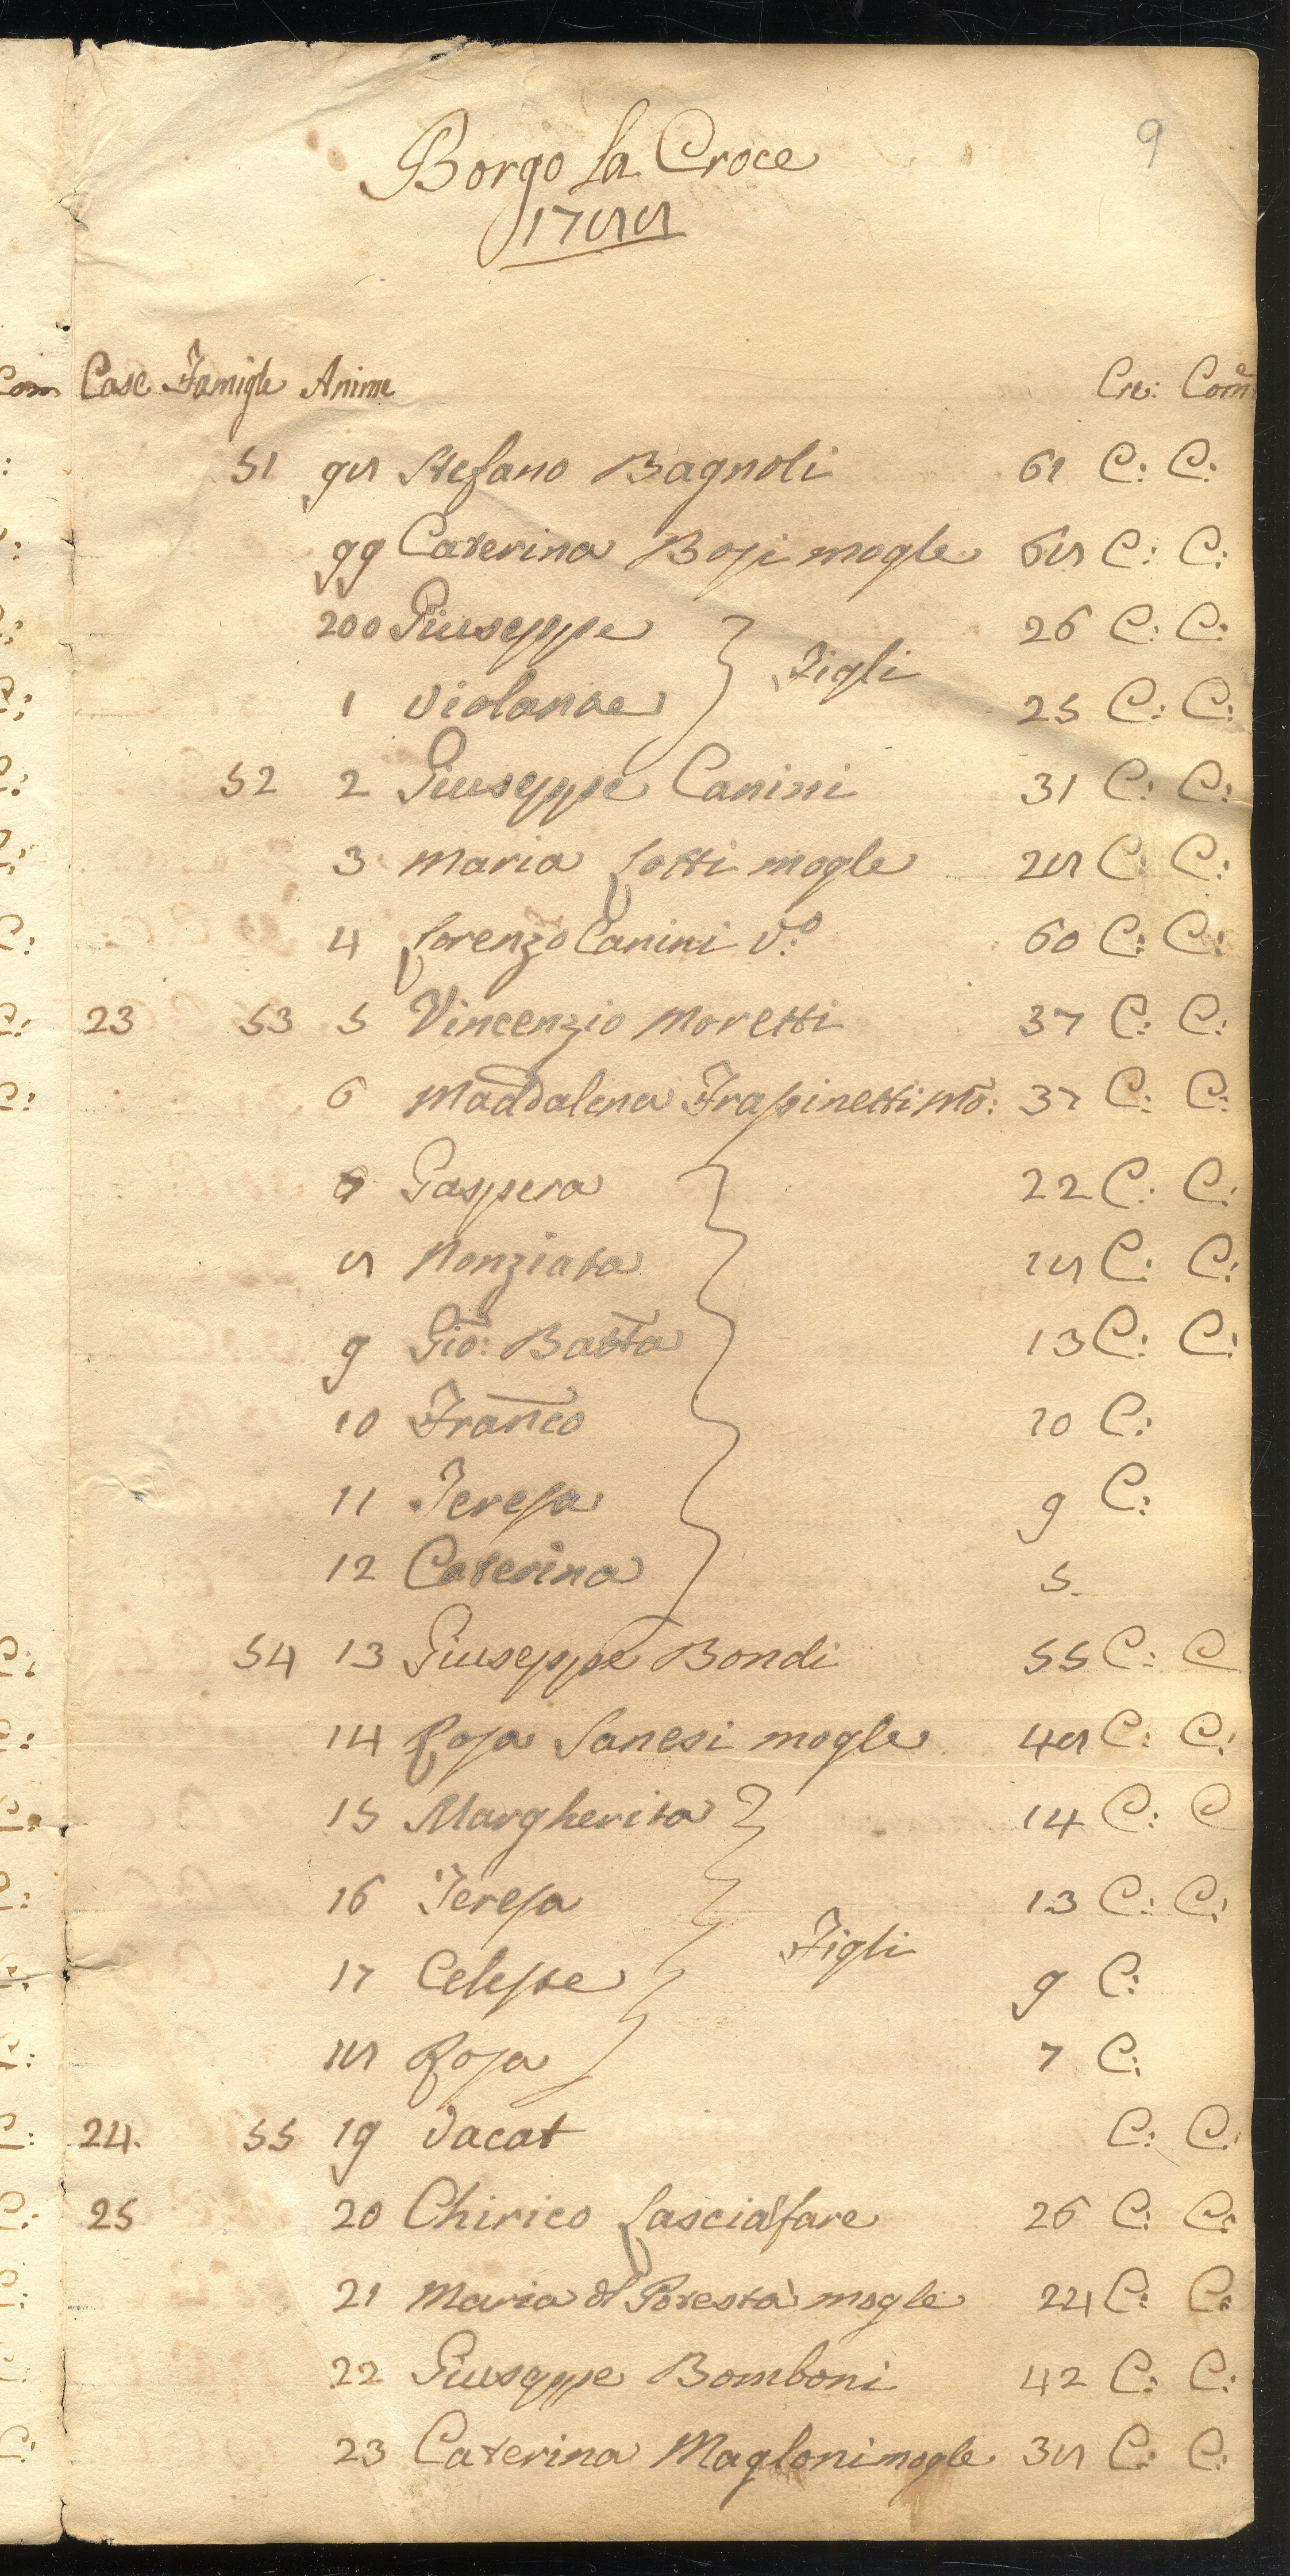 9
Borgo La Croce
1788
Case Famigle Anime Cre: Com
51 98 Stefano Bagnoli 61 C: C:
99 Caterina Bosi mogle 68 C: C:
200 Giuseppe 26 C: C:
Figli
1 Violante 25 C: C:
52 2 Giuseppe Canini 31 C: C:
3 Maria Lotti mogle 28 C: C:
4 Lorenzo Canini V.o 60 C: C:
23 53 5 Vincenzio Moretti 37 C: C:
6 Maddalena Frassinetti Mo: 37 C: C:
7 Gaspera 22 C: C:
8 Nonziata 18 C: C:
9 Gio: Batta 13 C: C:
10 Franco 10 C:
11 Teresa 9 C:
12 Caterina 5.
54 13 Giuseppe Bondi 55 C: C
14 Rosa Sanesi mogle 48 C: C:
15 Margherita 14 C: C
16 Teresa 13 C: C:
Figli
17 Celeste 9 C:
18 Rosa 7 C:
24. 55 19 Vacat C: C:
25 20 Chirico Lascialfare 26 C: C:
21 Maria del Potestà mogle 24 C: C:
22 Giuseppe Bomboni 42 C: C:
23 Caterina Magloni mogle 38 C: C: